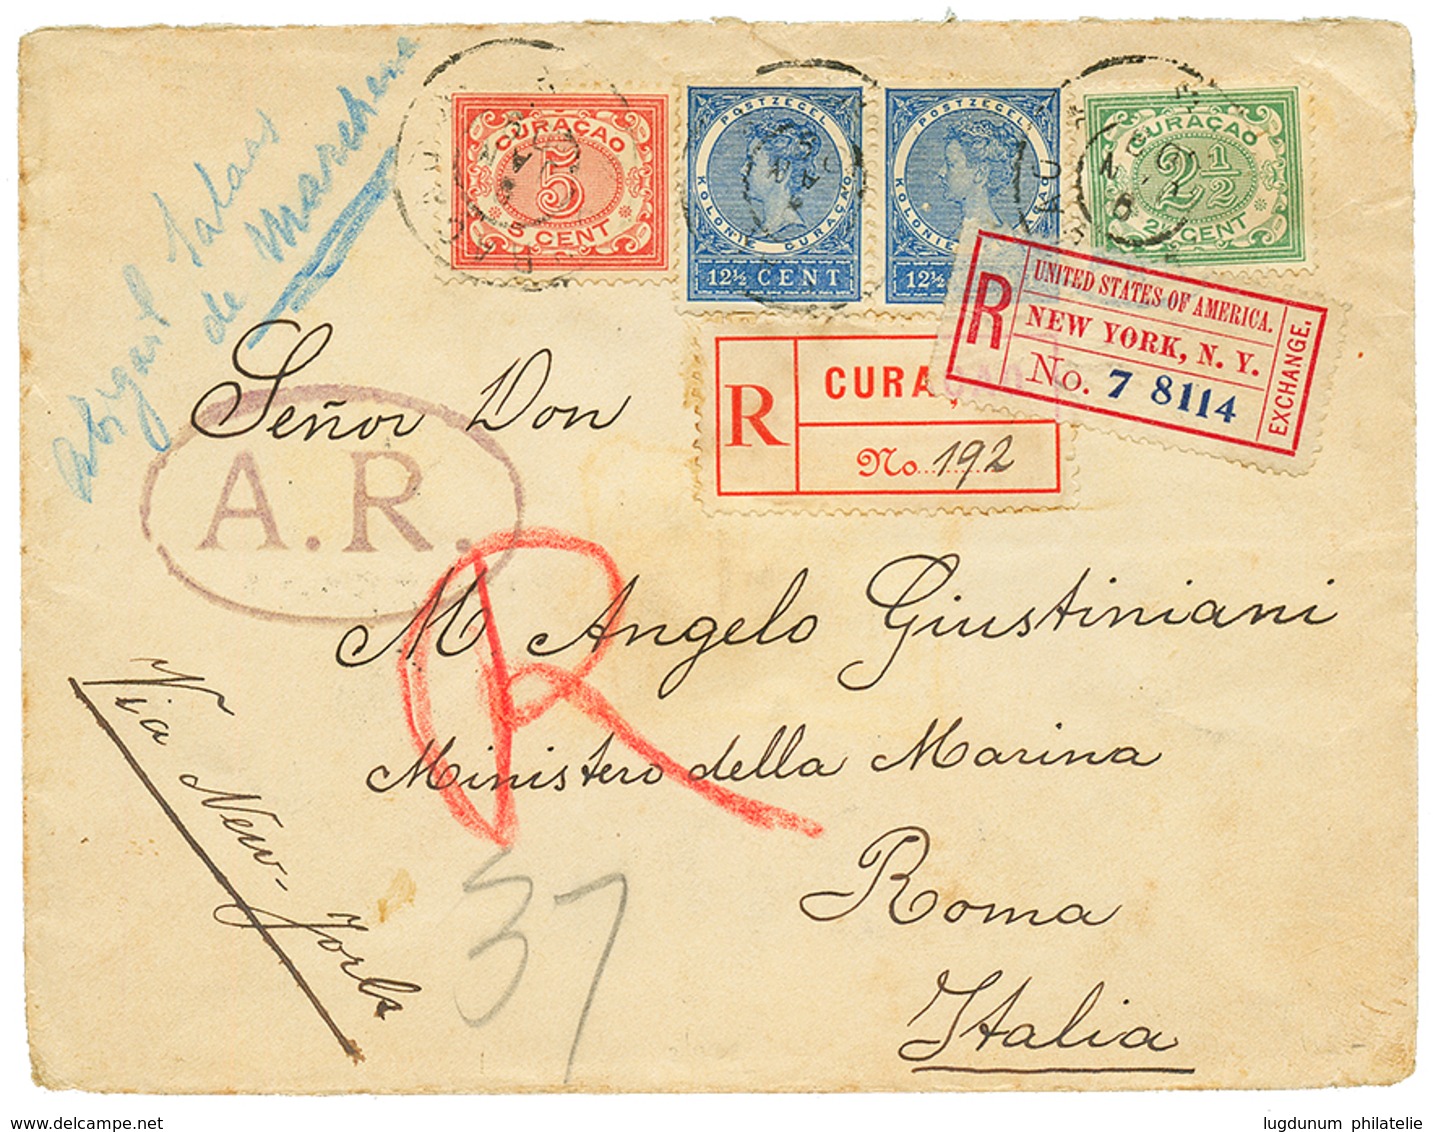 Abigail Salas
de Marchena
CURAÇAO
5
5 CENT
POSTZEGEL
KOLONIE CURAÇAO
12½ CENT
POSTZEGEL
KOLONIE
12½
CURAÇAO
2½
2½ CENT
R
UNITED STATES OF AMERICA.
NEW YORK, N. Y.
No. 7 8114
EXCHANGE.
R
CURAÇ
No 192
Señor Don
A.R.
R
M. Angelo Giustiniani
Ministero della Marina
Roma
Italia
Via New-York
37
www.delcampe.net
lugdunum philatelie